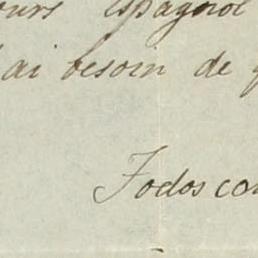 ours Espagnol
ai besoin de
Todos con